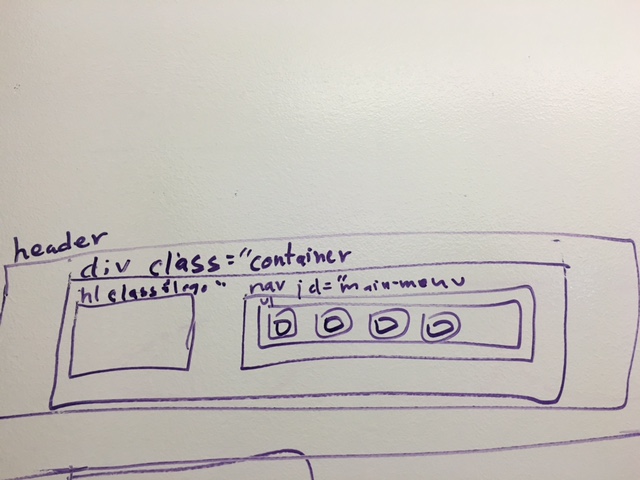 header
div class="container
h1 class="logo"
nav id="main-menu
ul